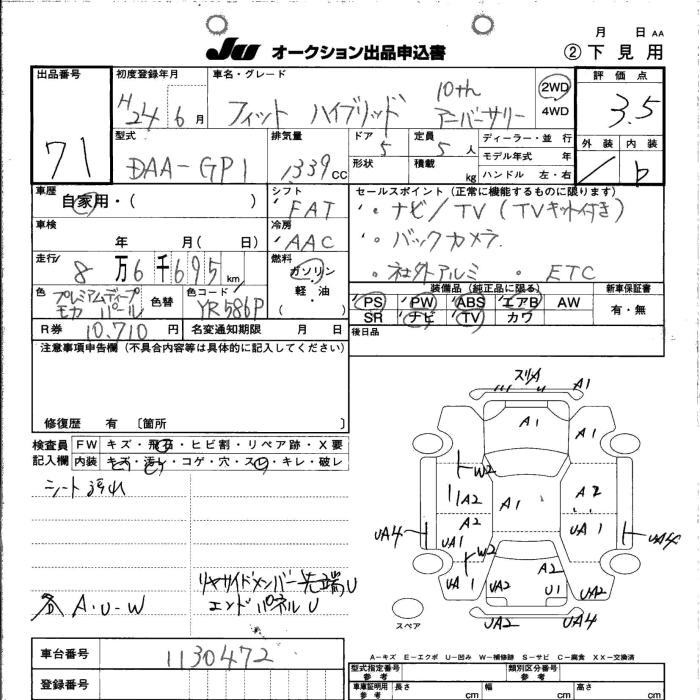 月 日 AA
JU オークション出品申込書 ②下見用
出品番号 初度登録年月 車名・グレード 評価点
71 H24 6月 フィット ハイブリッド 10th アニバーサリー 2WD 4WD 3.5
型式 排気量 ドア 定員 ディーラー・並行 外装 内装
DAA-GP1 1339cc 5 5人 モデル年式 年 b
形状 積載 kg ハンドル 左・右
車歴 自家用・( ) シフト FAT セールスポイント(正常に機能するものに限ります)
・ナビ/TV(TVキット付き)
車検 年 月( 日) 冷房 AAC ・バックカメラ
走行 8万6千695km 燃料 ガソリン 軽・油 ( ・社外アルミ ・ETC
色 プレミアムディープモカパール 色替 色コード YR586P
装備品(純正品に限る) 新車保証書
PS PW ABS エアB AW 有・無
SR ナビ TV カワ
R券 10,710円 名変通知期限 月 日 後日品
注意事項申告欄(不具合内容等は具体的に記入してください)
修復歴 有 〔箇所 〕
検査員記入欄 FW キズ・飛石・ヒビ割・リペア跡・X要
内装 キズ・汚レ・コゲ・穴・スレ・キレ・破レ
シート汚れ
リヤサイドメンバー先端U
各A・U-W エンドパネルU
スリA A1
A1 A1
W2
A2 A1 A2
UA4 A2 UA1 UA4
UA1 W2
UA1 UA2 A2 U1 UA2
スペア UA2 UA4
A-キズ E-エクボ U-凹み W-補修跡 S-サビ C-腐食 XX-交換済
車台番号 1130472
登録番号
型式指定番号 参考 類別区分番号 参考
車庫証明用 参考 長さ cm 幅 cm 高さ cm